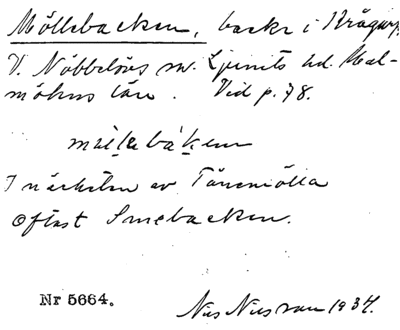 Möllebacken, backe i Brågarp,
V. Nöbbelövs sn. Ljunits hd. Mal-
möhus län. Vid p. 78.
I närheten av Tånemölla
Oftast Smebacken.
Nr 5664.
Nils Nilsson 1934.